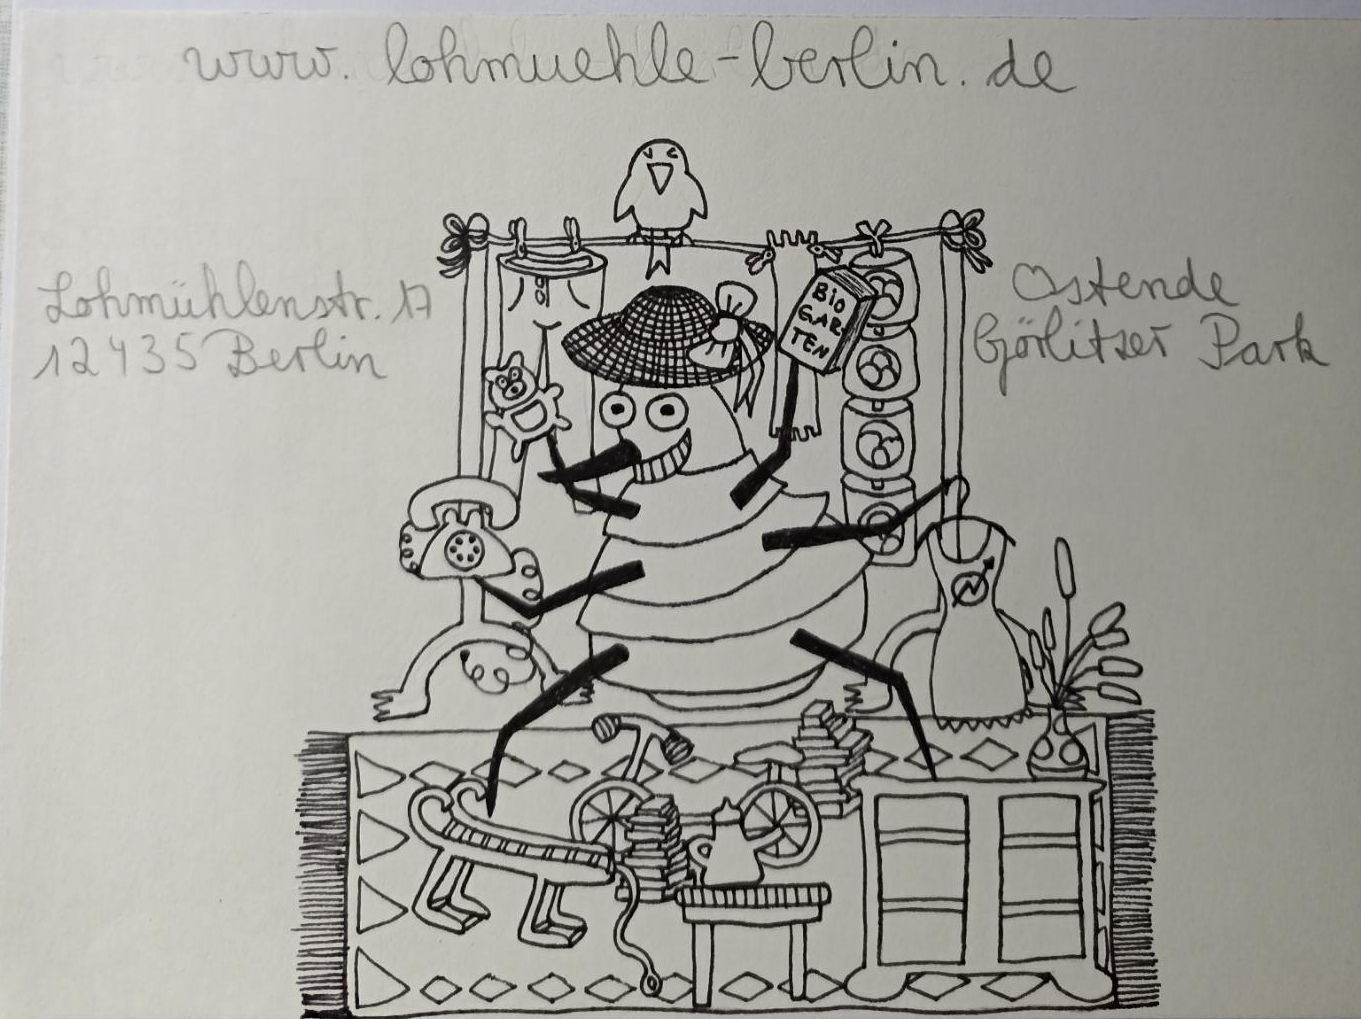 www.lohmuehle-berlin.de
Lohmühlenstr. 17
12435 Berlin
Ostende
Görlitzer Park
BiO
GAR
TEN